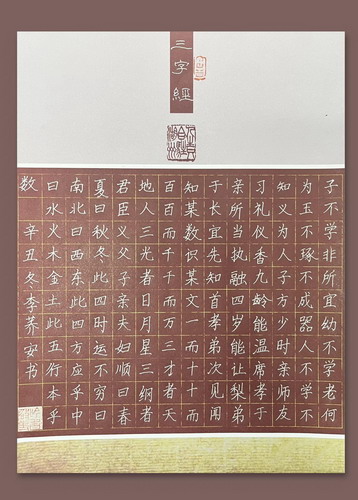 三字經
子不学非所宜幼不学老何
为玉不琢不成器人不学不
知义为人子方少时亲师友
习礼仪香九龄能温席孝于
亲所当执融四岁能让梨弟
于长宜先知首孝弟次见闻
知某数识某文一而十十而
百百而千千而万三才者天
地人三光者日月星三纲者
君臣义父子亲夫妇顺曰春
夏曰秋冬此四时运不穷曰
南北曰西东此四方应乎中
曰水火木金土此五行本乎
数
辛丑冬李荞安书